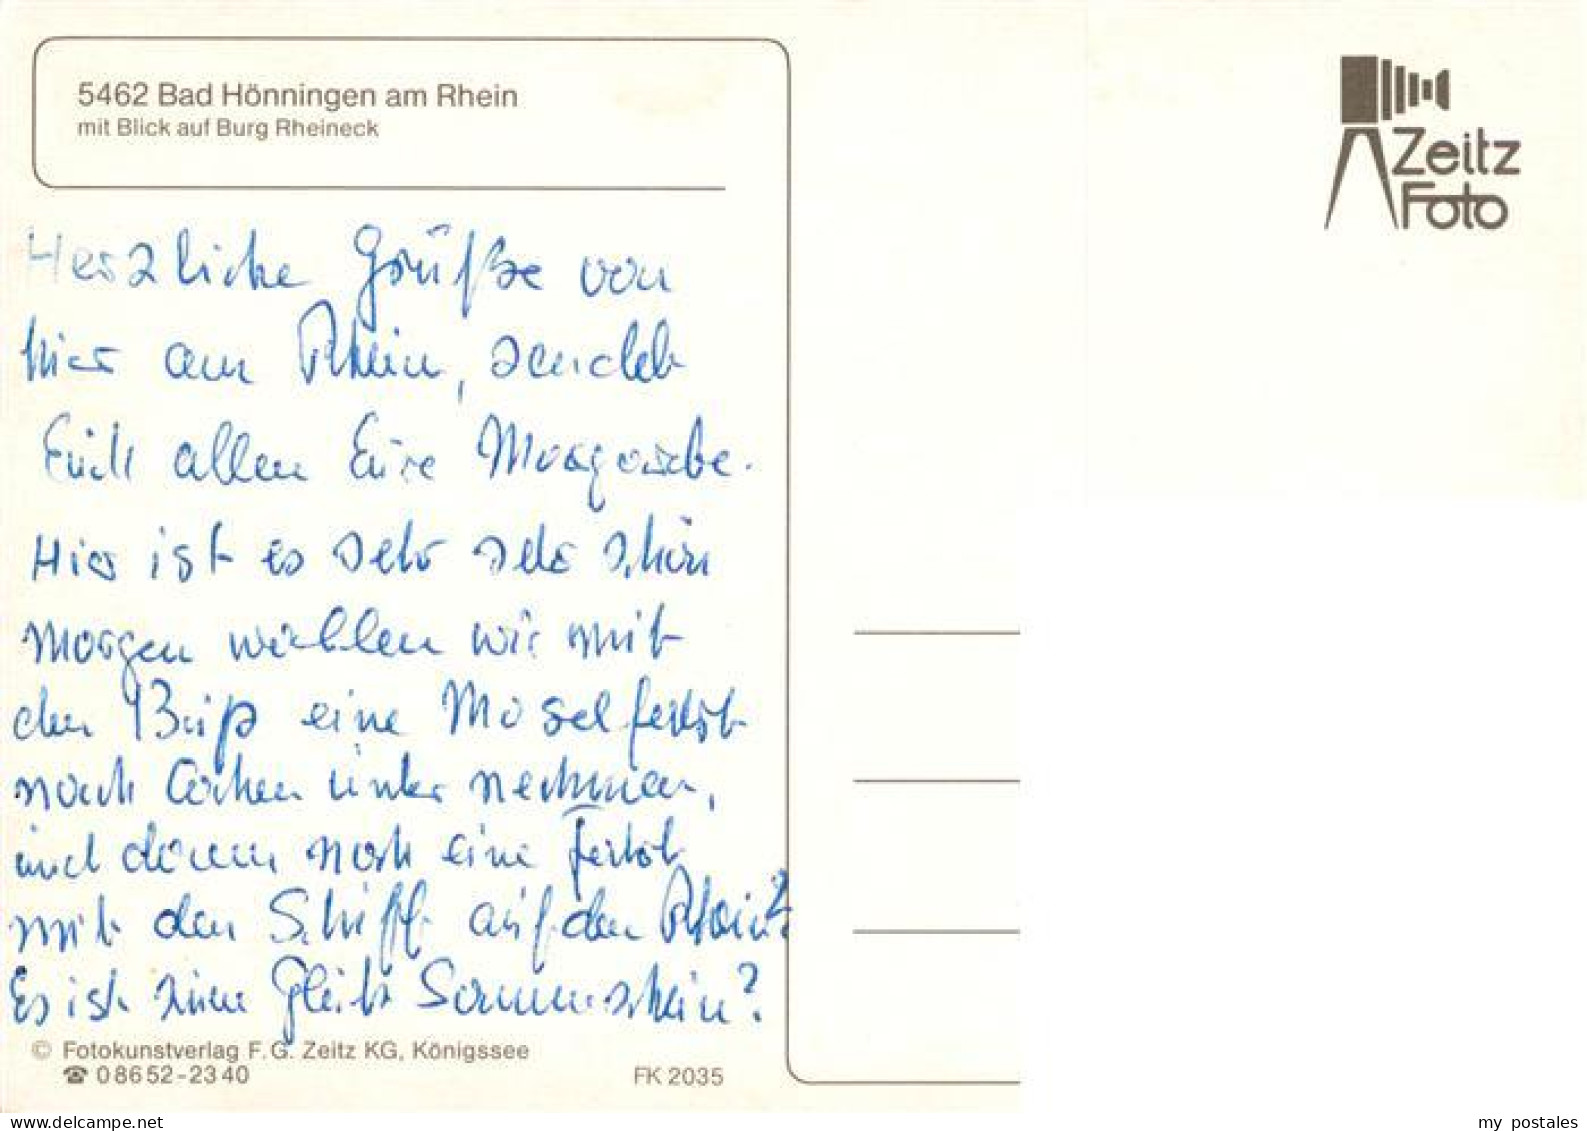 5462 Bad Hönningen am Rhein
mit Blick auf Burg Rheineck
Zeitz
Foto
Herzliche Grüße von
hier am Rhein, sendet
Euch allen Eure
Hier ist es sehr sehr schön
Morgen wollen wir mit
den eine Moselfahrt
nach Cochem unter nehmen,
und dann noch eine Fahrt
mit den Schiff auf den Rhein?
Es ist zum Glück Sonnenschein?
© Fotokunstverlag F.G. Zeitz KG, Königssee
☎ 08652-2340
FK 2035
www.delcampe.net
my_postales